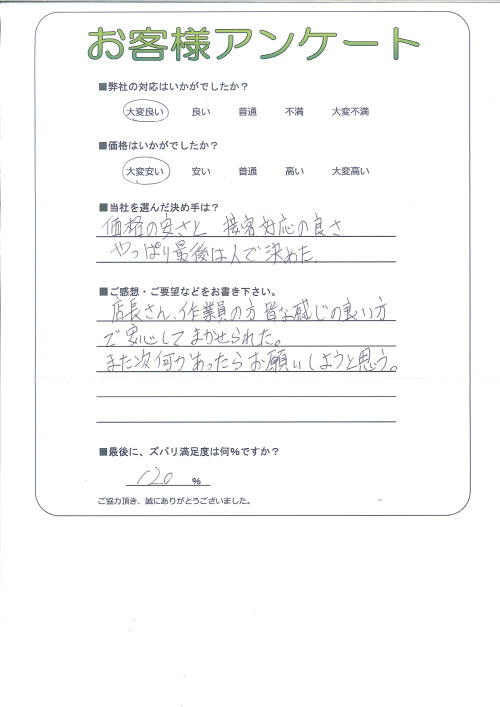 お客様アンケート
■弊社の対応はいかがでしたか？
大変良い 良い 普通 不満 大変不満
■価格はいかがでしたか？
大変安い 安い 普通 高い 大変高い
■当社を選んだ決め手は？
価格の安さと 接客対応の良さ
やっぱり最後は人で決めた。
■ご感想・ご要望などをお書き下さい。
店長さん、作業員の方皆な感じの良い方
で安心してまかせられた。
また次何かあったらお願いしようと思う。
■最後に、ズバリ満足度は何％ですか？
120 ％
ご協力頂き、誠にありがとうございました。